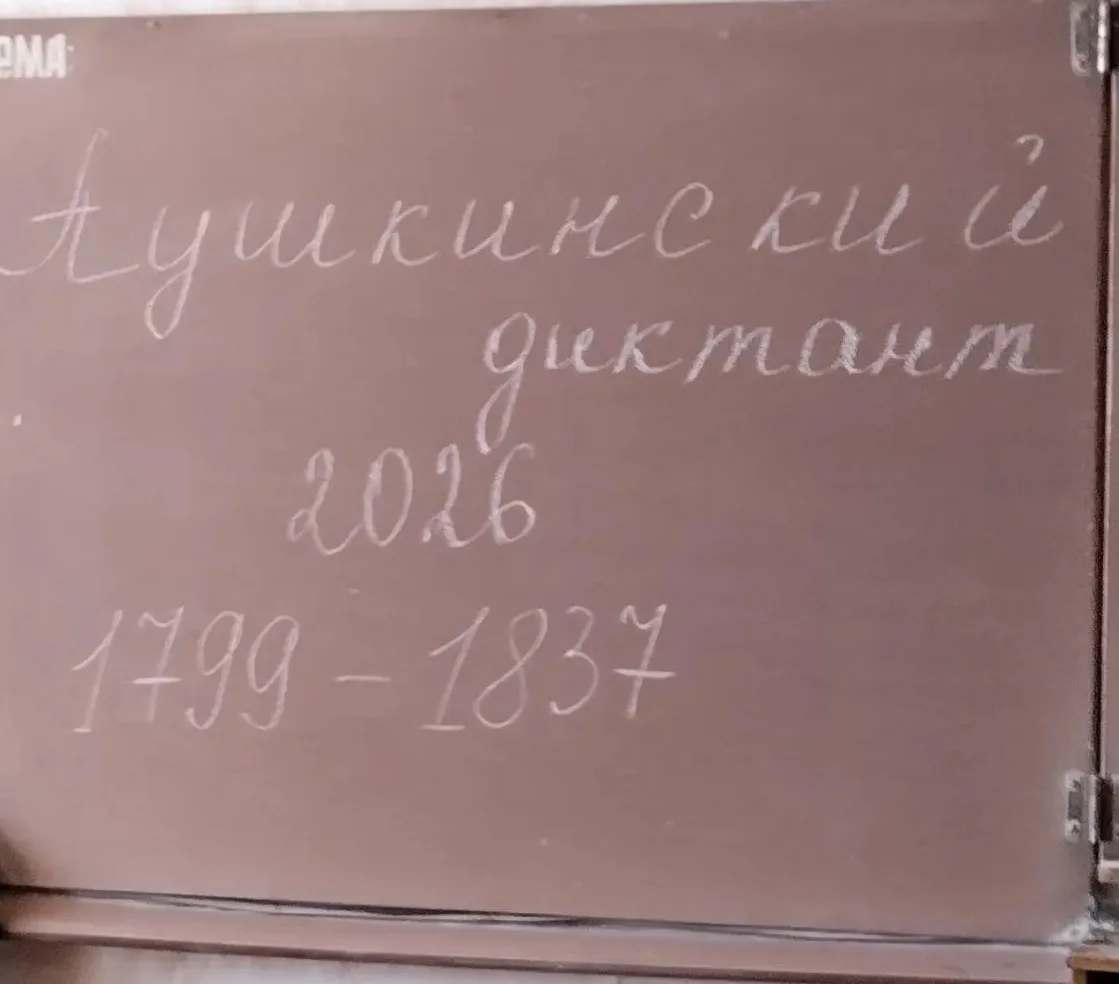 ема:
Пушкинский
диктант
2026
1799 - 1837